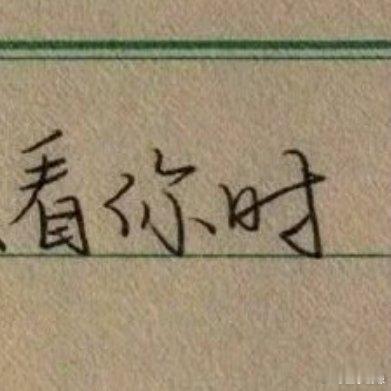 看你时